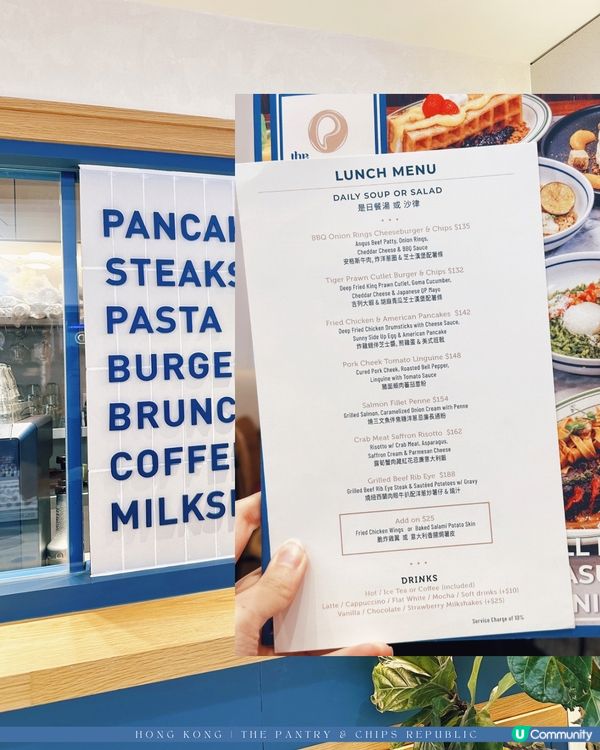 PANCAK
STEAKS
PASTA
BURGE
BRUNC
COFFE
MILKS
the
LUNCH MENU
DAILY SOUP OR SALAD
是日餐湯 或 沙律
BBQ Onion Rings Cheeseburger & Chips $135
Angus Beef Patty, Onion Rings,
Cheddar Cheese & BBQ Sauce
安格斯牛肉, 炸洋蔥圈 & 芝士漢堡配薯條
Tiger Prawn Cutlet Burger & Chips $132
Deep Fried King Prawn Cutlet, Goma Cucumber,
Cheddar Cheese & Japanese QP Mayo
吉列大蝦 & 胡麻青瓜芝士漢堡配薯條
Fried Chicken & American Pancakes $142
Deep Fried Chicken Drumsticks with Cheese Sauce,
Sunny Side Up Egg & American Pancake
炸雞髀伴芝士醬, 煎雞蛋 & 美式班戟
Pork Cheek Tomato Linguine $148
Cured Pork Cheek, Roasted Bell Pepper,
Linguine with Tomato Sauce
Salmon Fillet Penne $154
Grilled Salmon, Caramelized Onion Cream with Penne
Crab Meat Saffron Risotto $162
Risotto w/ Crab Meat, Asparagus,
Saffron Cream & Parmesan Cheese
露筍蟹肉藏紅花忌廉意大利飯
Grilled Beef Rib Eye $188
Grilled Beef Rib Eye Steak & Sautéed Potatoes w/ Gravy
燒紐西蘭肉眼牛扒配洋蔥炒薯仔 & 燒汁
Add on $25
Fried Chicken Wings or Baked Salami Potato Skin
脆炸雞翼 或 意大利香腸焗薯皮
DRINKS
Hot / Ice Tea or Coffee (included)
Latte / Cappuccino / Flat White / Mocha / Soft drinks (+$10)
Vanilla / Chocolate / Strawberry Milkshakes (+$25)
Service Charge of 10%
HONG KONG | THE PANTRY & CHIPS REPUBLIC
U Community